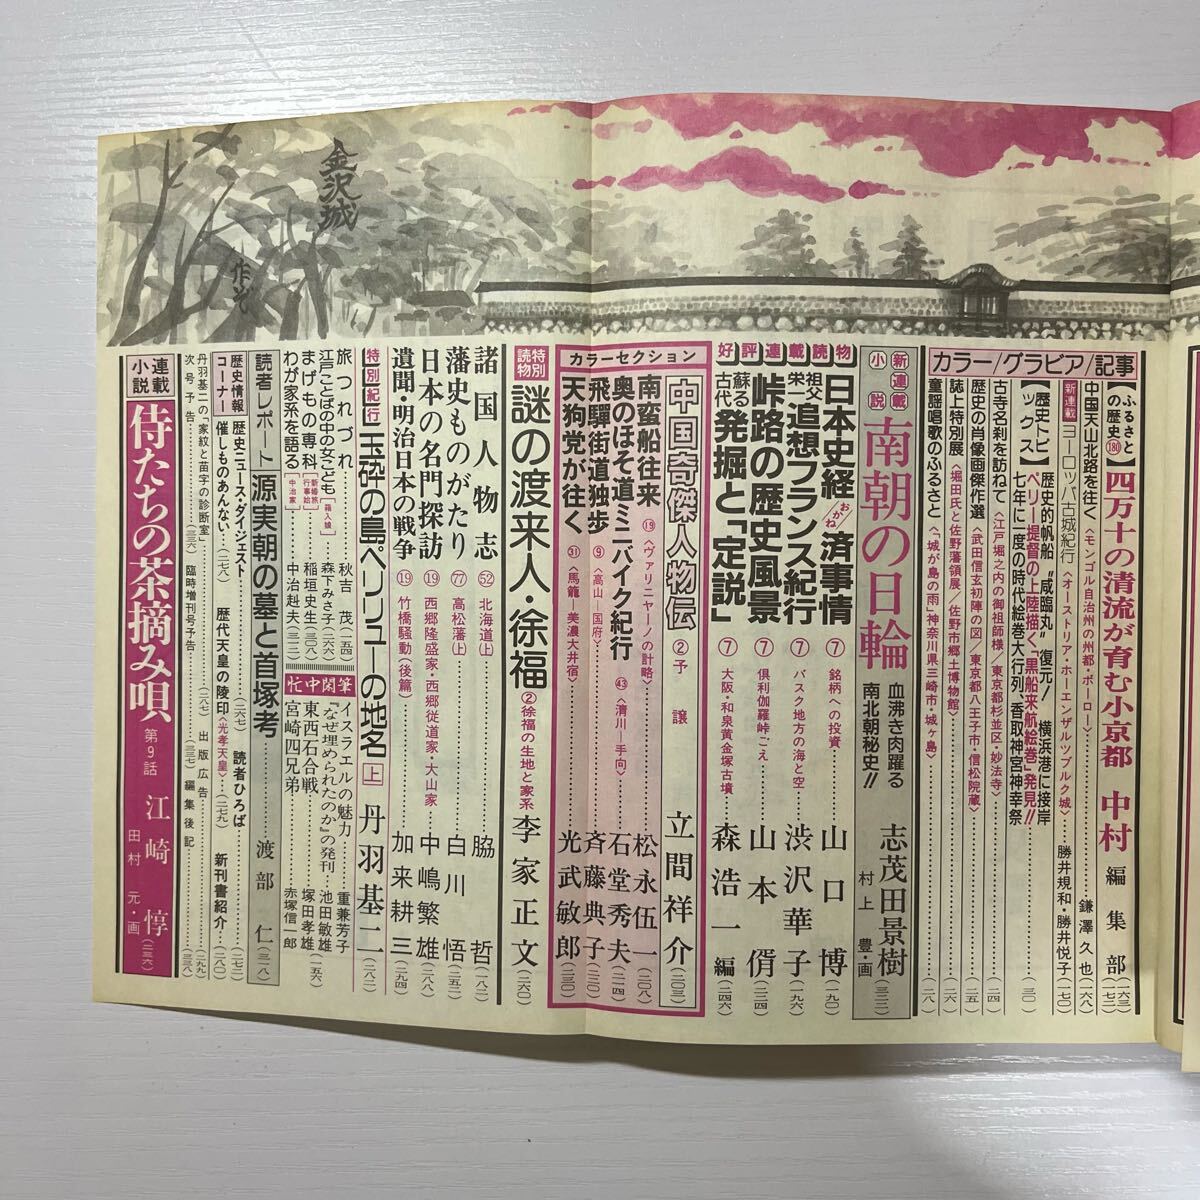 金沢城
作ゑ
カラー/グラビア/記事
【ふるさとの歴史180】四万十の清流が育む小京都 中村 編集部(一六三)(一七二)
中国天山北路を往く〈モンゴル自治州の州都・ボーロー〉………鎌澤久也(一六八)
新連載 ヨーロッパ古城紀行〈オーストリア・ホーエンザルツブルク城〉…勝井規和・勝井悦子(一七〇)
【歴史トピックス】歴史的帆船〝咸臨丸〟復元! 横浜港に接岸
ペリー提督の上陸描く「黒船来航絵巻」発見!!
七年に一度の時代絵巻大行列/香取神宮神幸祭………(三〇)
古寺名刹を訪ねて〈江戸堀之内の御祖師様/東京都杉並区・妙法寺〉………(二四)
歴史の肖像画傑作選〈武田信玄初陣の図/東京都八王子市・信松院蔵〉………(二五)
誌上特別展〈堀田氏と佐野藩領展/佐野市郷土博物館〉………(二六)
童謡唱歌のふるさと〈「城が島の雨」神奈川県三崎市・城ヶ島〉………(二八)
新連載小説 南朝の日輪 血沸き肉躍る南北朝秘史!! 志茂田景樹(三二二)
村上 豊・画
好評連載読物
日本史経済事情 おかね ⑦ 銘柄への投資………山口 博(一九〇)
祖父栄一 追想フランス紀行 ⑦ バスク地方の海と空………渋沢華子(一九六)
峠路の歴史風景 ⑦ 倶利伽羅峠ごえ………山本 偦(二三四)
蘇る古代 発掘と「定説」 ⑦ 大阪・和泉黄金塚古墳………森浩一編(二四六)
カラーセクション
中国奇傑人物伝 ②予譲 立間祥介(二〇三)
南蛮船往来 ⑲〈ヴァリニャーノの計略〉………松永伍一(二〇八)
奥のほそ道ミニバイク紀行 ㊸〈清川―手向〉………石堂秀夫(二一四)
飛騨街道独歩 ⑨〈高山―国府〉………斉藤典子(二三〇)
天狗党が往く ㉛〈馬籠―美濃大井宿〉………光武敏郎(二三〇)
特別読物 謎の渡来人・徐福 ②徐福の生地と家系 李家正文(二六〇)
諸国人物志 52 北海道(上)………脇 哲(一八二)
藩史ものがたり 77 高松藩(上)………白川 悟(一五二)
日本の名門探訪 ⑲ 西郷隆盛家・西郷従道家・大山家………中嶋繁雄(二八八)
遺聞・明治日本の戦争 ⑲ 竹橋騒動(後篇)………加来耕三(二九四)
特別紀行 玉砕の島ペリリューの地名 上 丹羽基二(二八二)
旅つれづれ………秋吉 茂(一五四)
江戸ことばの中の女こども[箱入娘]………森下みさ子(二六六)
まげもの専科[新婚旅行事始]………稲垣史生(三〇八)
わが家系を語る[中治家]………中治赳夫(三一二)
忙中閑筆
イスラエルの魅力………重兼芳子
『なぜ埋められたのか』の発刊…池田敏雄
東西石合戦………塚田孝雄(一五六)
宮崎四兄弟………赤塚信一郎
読者レポート 源実朝の墓と首塚考………渡部 仁(三一八)
歴史情報コーナー
歴史ニュース・ダイジェスト………(二六七) 読者ひろば………(二七二)
催しものあんない…(二七八) 歴代天皇の陵印〈光孝天皇〉…(二七九) 新刊書紹介…(二八〇)
丹羽基二の「家紋と苗字の診断室」………(二三六) 臨時増刊号予告………(二八七) 出版広告………(二九九)
次号予告………(三三七) 編集後記………(三三八)
連載小説 侍たちの茶摘み唄 第9話 江崎 惇(二三六)
田村 元・画